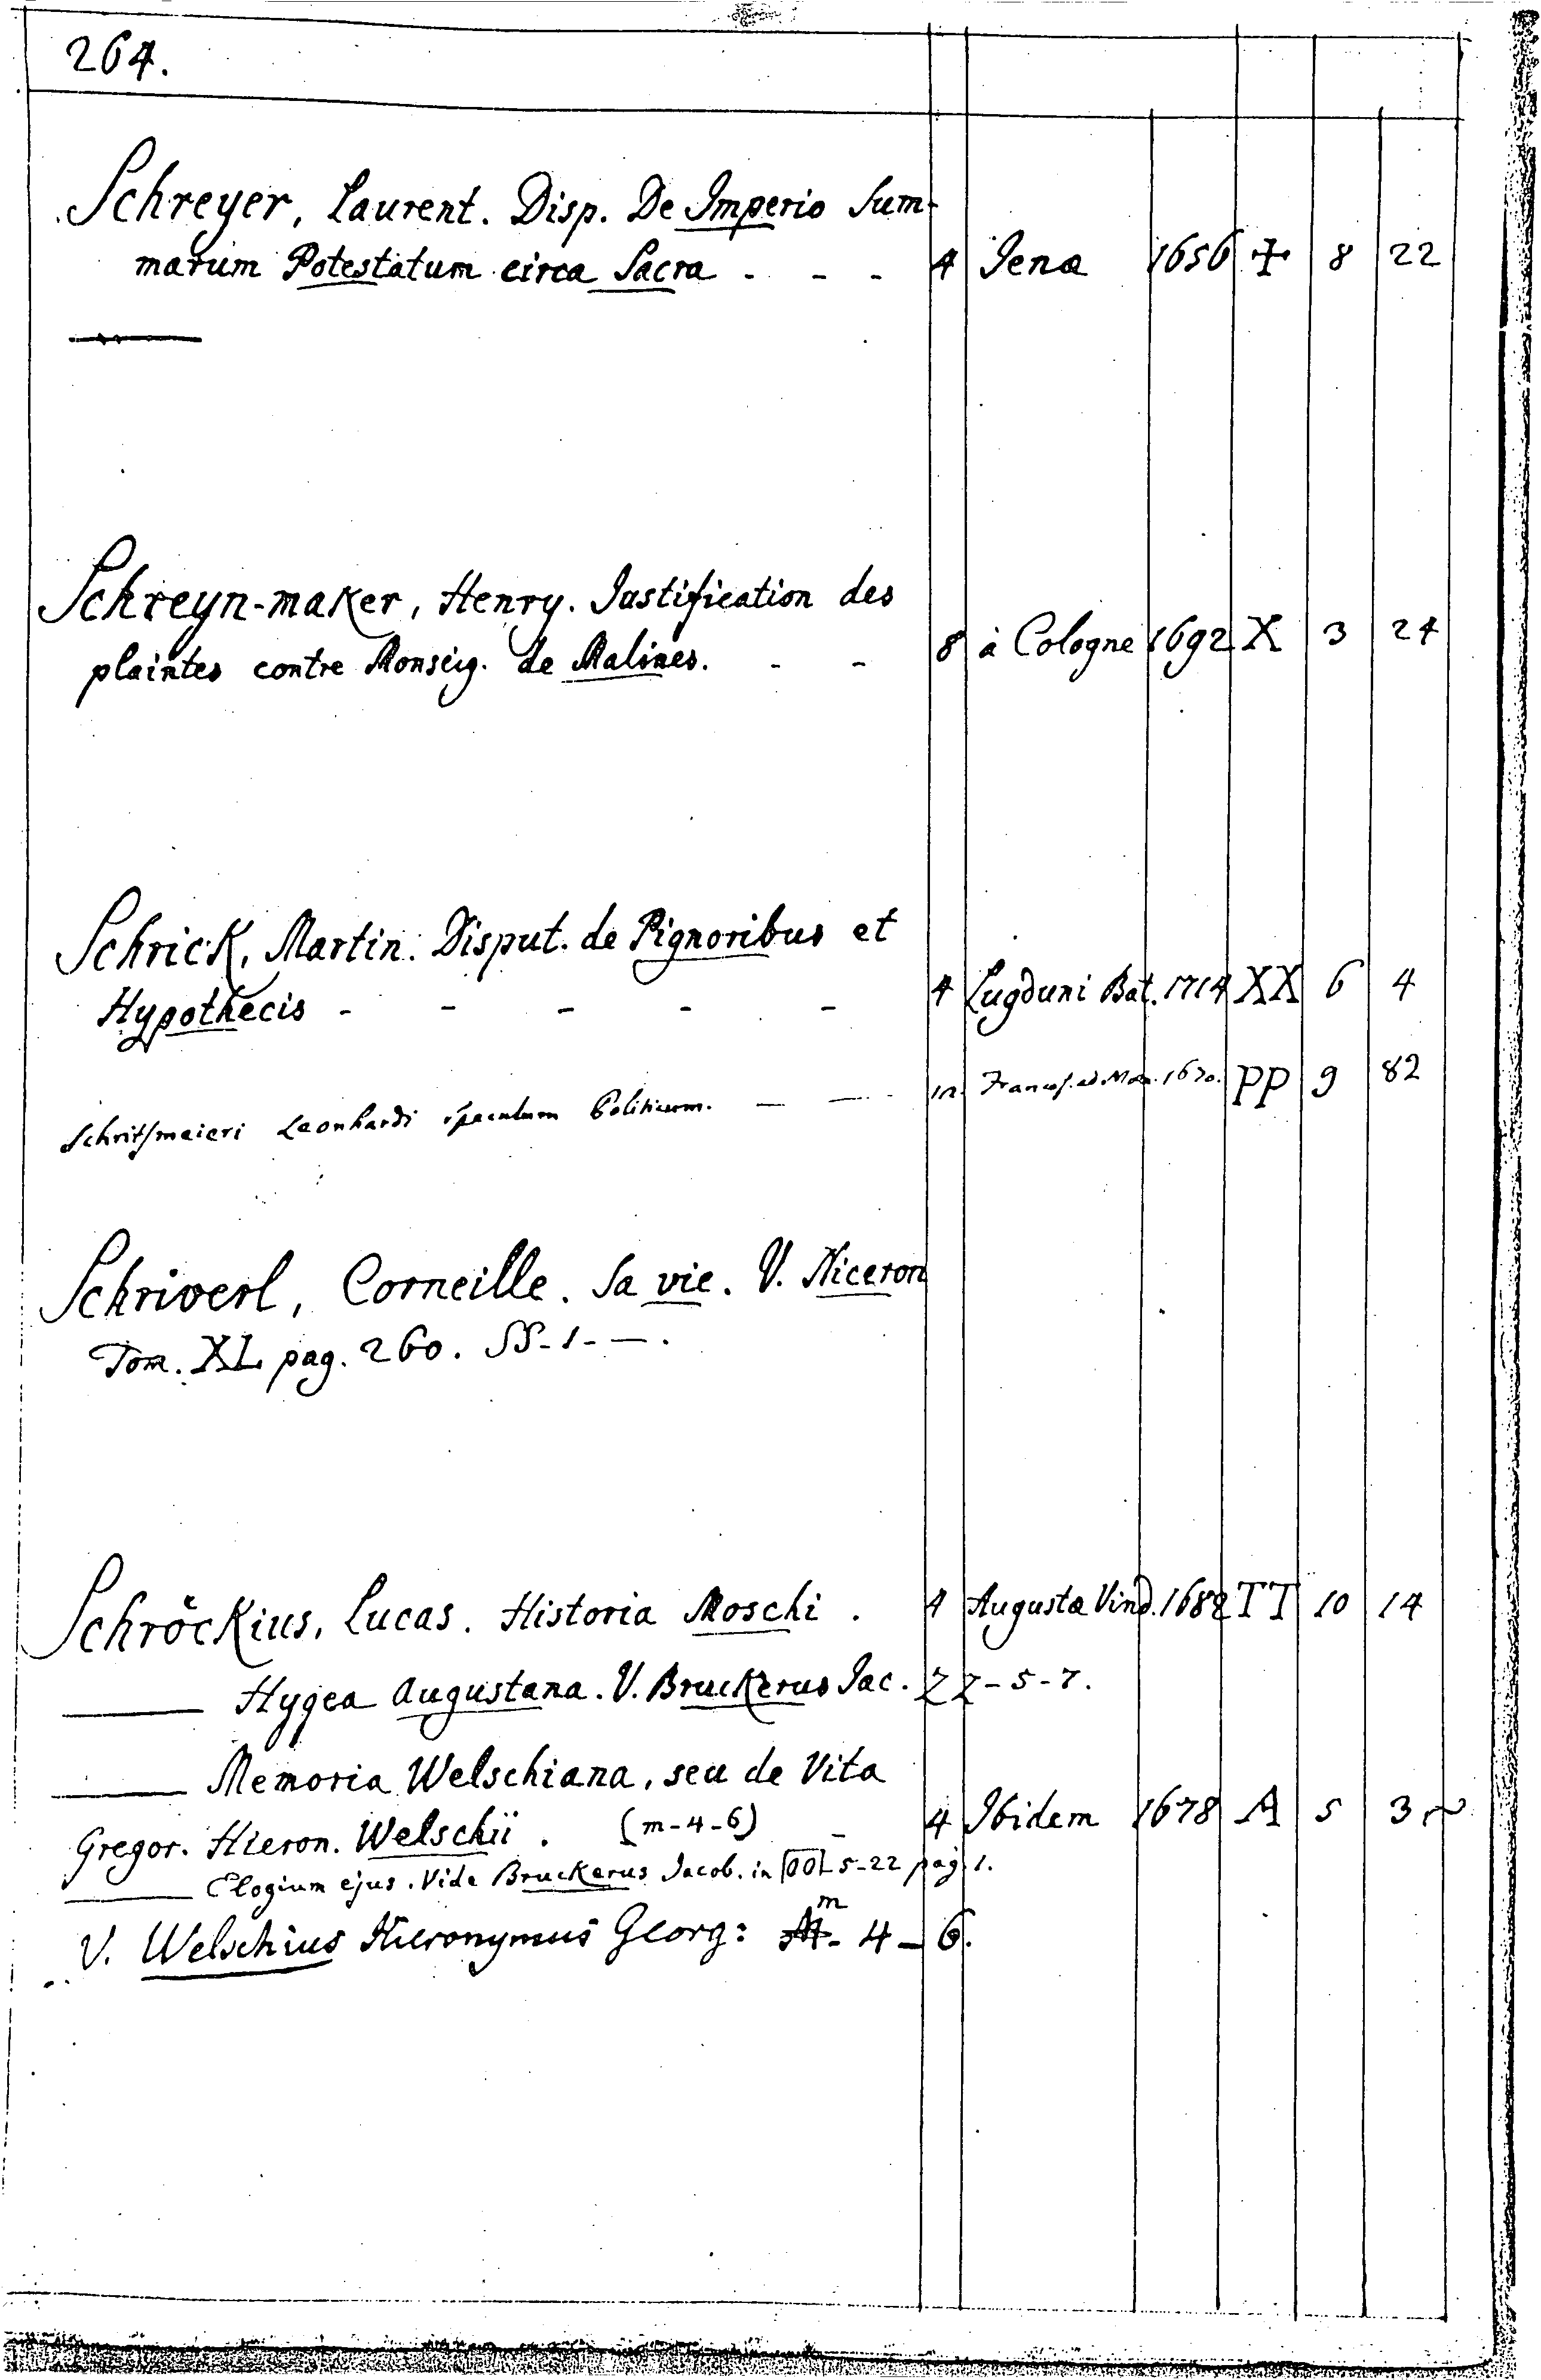 264.
Schreyer, Laurent. Disp. De Imperio Sum-
marum Potestatum circa Sacra - - - 4 Jenæ 1656 + 8 22
Schreyn-maker, Henry. Justification des
plaintes contre Monseig. de Malines. - - 8 à Cologne 1692 X 3 24
Schrick, Martin. Disput. de Pignoribus et
Hypothecis - - - - - 4 Lugduni Bat. 1714 XX 6 4
Schritsmaieri Leonhardi Speculum Politicum. — — 12. Francof. ad Mœn. 1670. PP 9 82
Schriverl, Corneille. Sa vie. V. Niceron
Tom. XL pag. 260. SS-1-—.
Schröckius, Lucas. Historia Moschi . 4 Augustæ Vind. 1682 TT 10 14
— Hygea Augustana. V. Bruckerus Jac. ZZ-5-7.
— Memoria Welschiana, seu de Vita
Gregor. Hieron. Welschii . (m-4-6) - 4 Ibidem 1678 A 5 3
— Elogium ejus. Vide Bruckerus Jacob. in OO 5-22 pag 1.
V. Welschius Hieronymus Georg: m - 4 - 6.